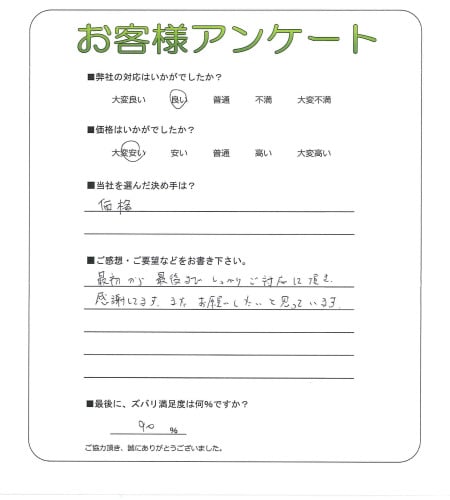 お客様アンケート
■弊社の対応はいかがでしたか？
大変良い 良い 普通 不満 大変不満
■価格はいかがでしたか？
大変安い 安い 普通 高い 大変高い
■当社を選んだ決め手は？
価格
■ご感想・ご要望などをお書き下さい。
最初から最後まで しっかりご対応に頂き
感謝してます。また お願いしたいと思っています。
■最後に、ズバリ満足度は何%ですか？
90 %
ご協力頂き、誠にありがとうございました。